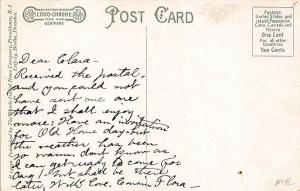 LITHO-CHROME
TRADE MARK
GERMANY
POST CARD
Postage:
United States and
Island Possessions
Cuba, Canada and
Mexico
One Cent
For all other
countries
Two Cents
Dear Clara-
Received the postal-
and you could not
have sent one are
that I shall enjoy
more. Have an invitation
for Old Home day- but
the weather has been
so warm don't know as
I can get ready to come for
day, but shall be there
later, With love. Cousin Flora-
M.E.